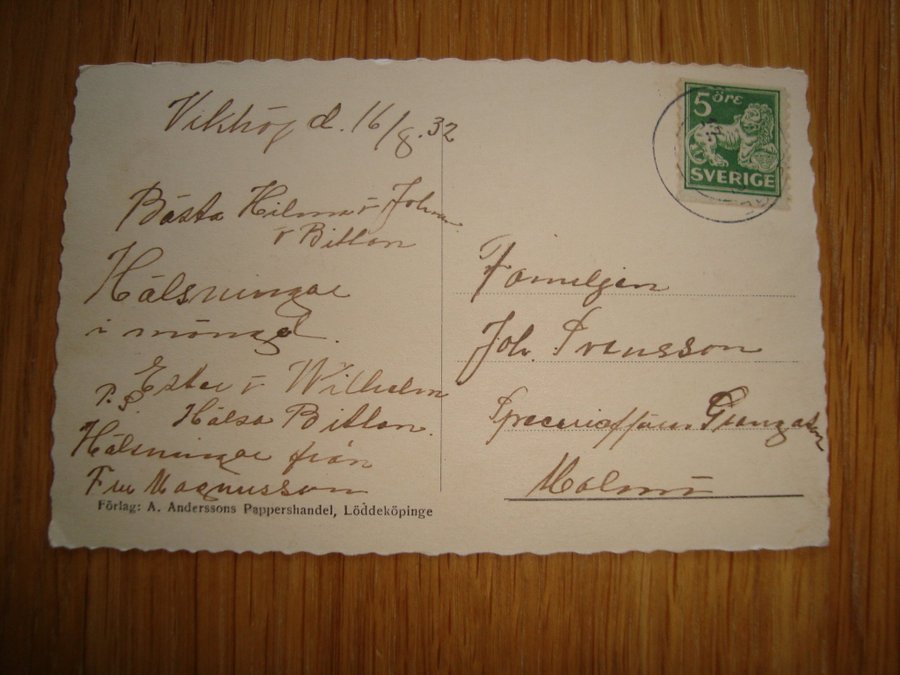 Vikhög d. 16/8.32
Bästa Hilma o Johan
o Bittan
Hälsningar
i mängd.
Ester o Wilhelm
P.S. Hälsa Bittan.
Hälsningar från
Fru Magnusson
Förlag: A. Anderssons Pappershandel, Löddeköpinge
5 ÖRE
SVERIGE
Familjen
Joh. Svensson
Malmö